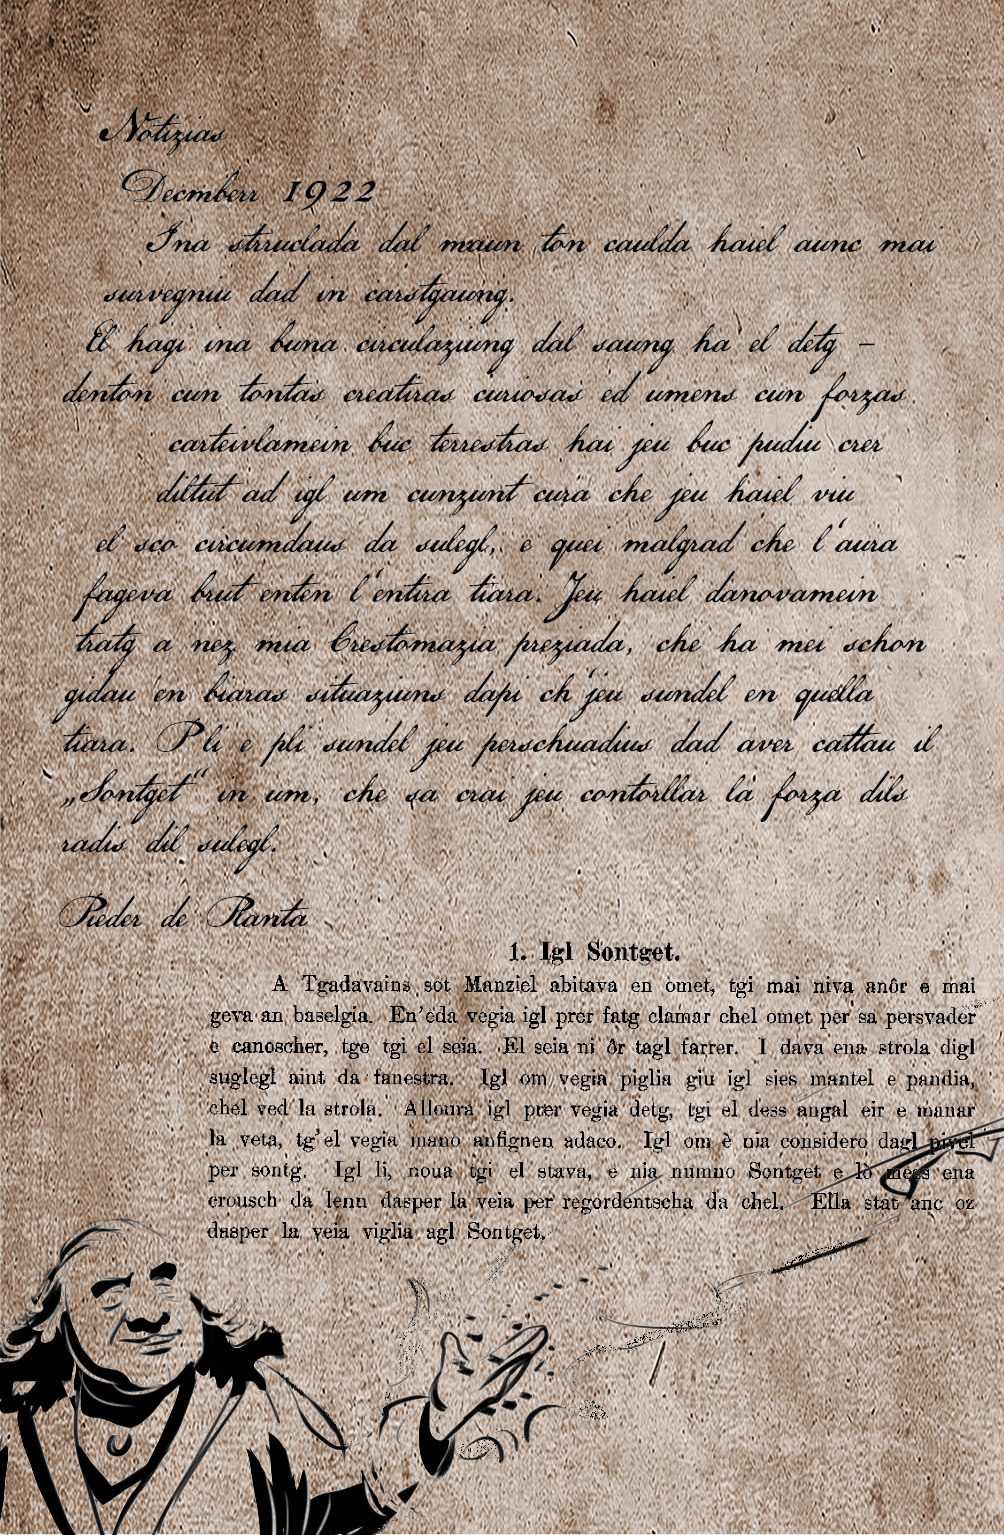 Notizias
Decmberr 1922
Ina strruclada dal maun ton caulda haiel aunc mai
survegniu dad in carstgaung.
El hagi ina buna circulaziung dal saung ha el detg –
denton cun tontas creatiras curiosas ed umens cun forzas
carteivlamein buc terrestras hai jeu buc pudiu crer
diltut ad igl um cunzunt cura che jeu haiel viu
el sco circumdaus da sulegl, e quei malgrad che l'aura
fageva brut enten l'entira tiara. Jeu haiel danovamein
tratg a nez mia Crestomazia preziada, che ha mei schon
gidau en biaras situaziuns dapi ch'jeu sundel en quella
tiara. Pli e pli sundel jeu perschuadius dad aver cattau il
„Sontget“ in um, che sa crai jeu contorllar la forza dils
radis dil sulegl.
Pieder de Planta
1. Igl Sontget.
A Tgadavains sot Manziel abitava en omet, tgi mai niva anôr e mai
geva an baselgia. En'eda vegia igl prer fatg clamar chel omet per sa persvader
e canoscher, tge tgi el seia. El seia ni ôr tagl farrer. I dava ena strola digl
suglegl aint da fanestra. Igl om vegia piglia giu igl sies mantel e pandia,
chel ved la strola. Alloura igl prer vegia detg, tgi el dess angal eir e manar
la veta, tg'el vegia mano anfignen adaco. Igl om è nia considero dagl pivel
per sontg. Igl li, noua tgi el stava, e nia numno Sontget e lò mess ena
crousch da lenn dasper la veia per regordentscha da chel. Ella stat anc oz
dasper la veia viglia agl Sontget.